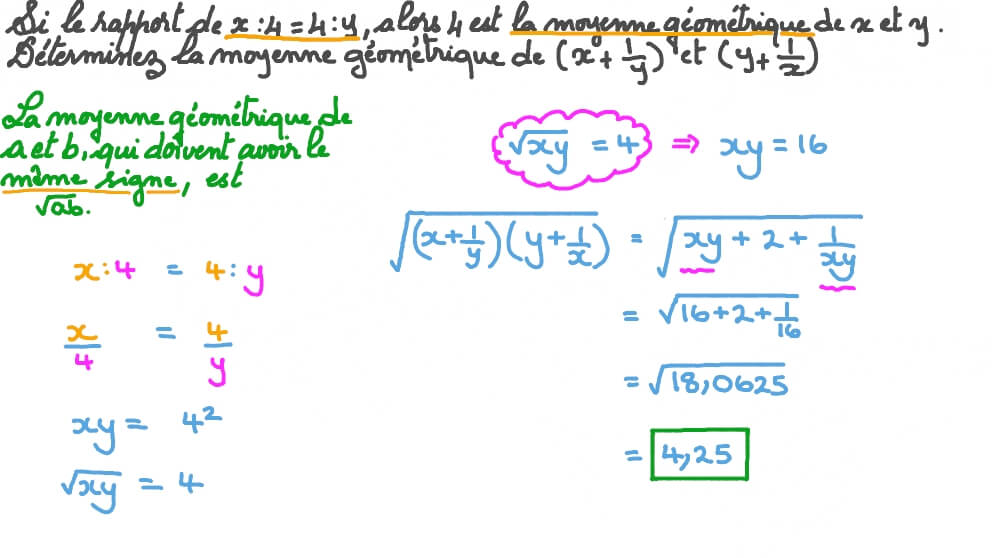 Si le rapport de x:4 = 4:y, alors 4 est la moyenne géométrique de x et y.
Déterminez la moyenne géométrique de (x + 1/y) et (y + 1/x)
La moyenne géométrique de
a et b, qui doivent avoir le
même signe, est
√ab.
x:4 = 4:y
x/4 = 4/y
xy = 4²
√xy = 4
√xy = 4 ⇒ xy = 16
√(x+1/y)(y+1/x) = √xy + 2 + 1/xy
= √16+2+1/16
= √18,0625
= 4,25